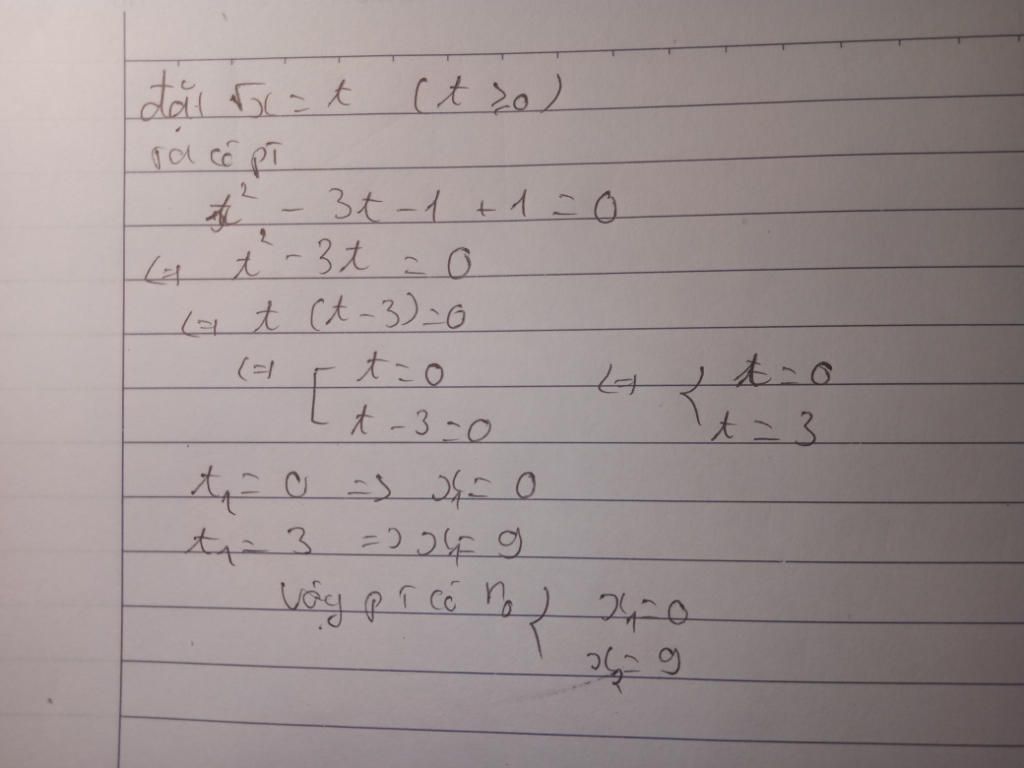 đặt √x = t (t ≥ 0)
ta có pt
t² - 3t - 1 + 1 = 0
<=> t² - 3t = 0
<=> t (t - 3) = 0
<=> [ t = 0 <=> { t = 0
t - 3 = 0 t = 3
t₁ = 0 => x₁ = 0
t₁ = 3 => x₁ = 9
Vậy pt có n₀ { x₁ = 0
x₂ = 9